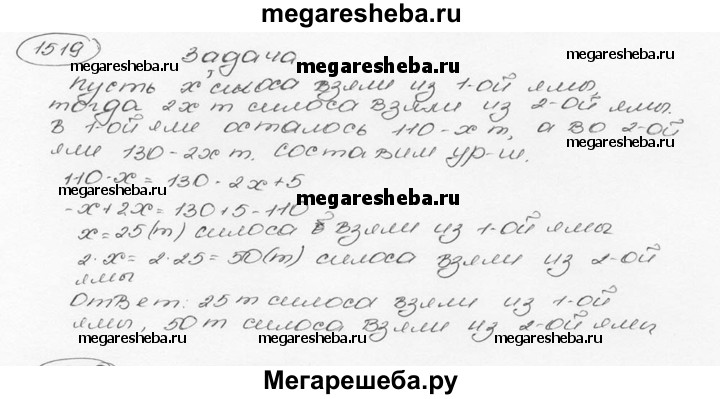 megaresheba.ru
1519 Задача
megaresheba.ru megaresheba.ru megaresheba.ru
Пусть х силоса взяли из 1-ой ямы,
тогда 2х т силоса взяли из 2-ой ямы.
В 1-ой яме осталось 110-х т, а во 2-ой
megaresheba.ru
яме 130-2х т. Составим ур-ие.
110-х=130-2х+5
megaresheba.ru
-х+2х=130+5-110
х=25(т) силоса взяли из 1-ой ямы
megaresheba.ru megaresheba.ru
2·х=2·25=50(т) силоса взяли из 2-ой
ямы
Ответ: 25 т силоса взяли из 1-ой
ямы, 50 т силоса взяли из 2-ой ямы
megaresheba.ru megaresheba.ru megaresheba.ru
Мегарешеба.ру